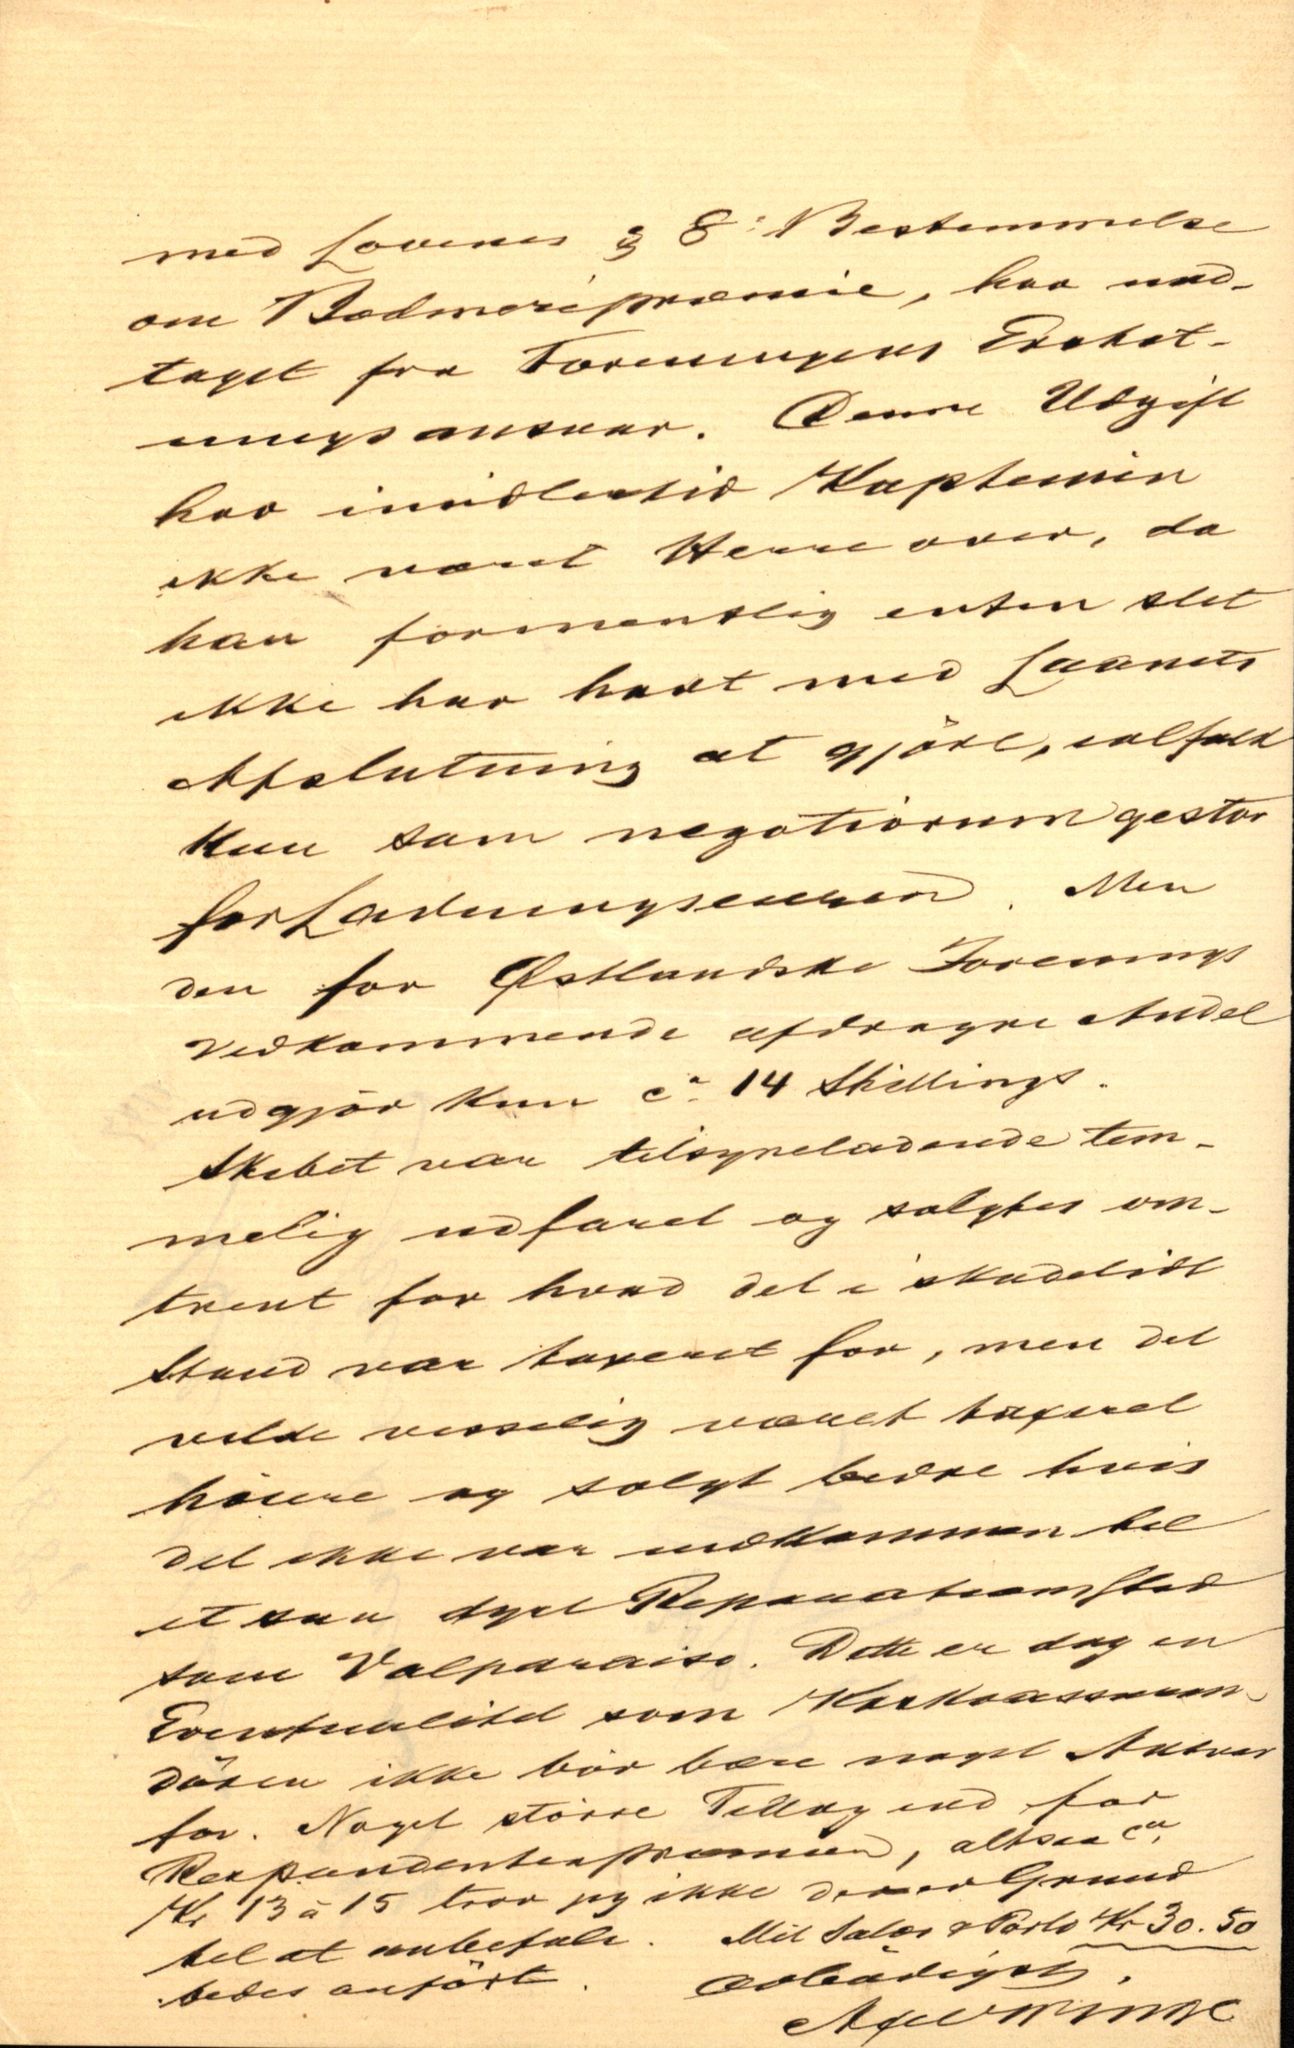 med Lovenes § 8: Bestemmelse
om Bodmeripræmie, har und-
taget fra Foreningens Erstat-
ningsansvar. Denne Udgift
har imidlertid Kaptein
ikke været Herre over, da
han formentlig enten slet
ikke har havt med Laanets
Afslutning at gjöre, ialfald
kun som negotiorum gestor
for Ladningseieren. Men
den for Østlandske Forenings
Vedkommende afdragne Andel
udgjör kun ca 14 Shillings.
Skibet var tilsyneladende tem-
melig udfaret og solgtes om-
trent for hvad det i skadelidt
Stand var taxeret for, men det
vilde visselig været taxeret
höiere og solgt bedre hvis
det ikke var indkommen til
et saa dyrt Reparationssted
som Valparaiso. Dette er dog en
Eventualitet som Kaskoassuran-
dören ikke bör bære noget Ansvar
for. Noget större Tillæg end for
Respondentiapræmien, altsaa ca
Kr 13 à 15 tror jeg ikke der er Grund
til at anbefale. Mit Salær & Porto Kr 30.50
bedes anfört. Ærbödigst,
Axel Winge